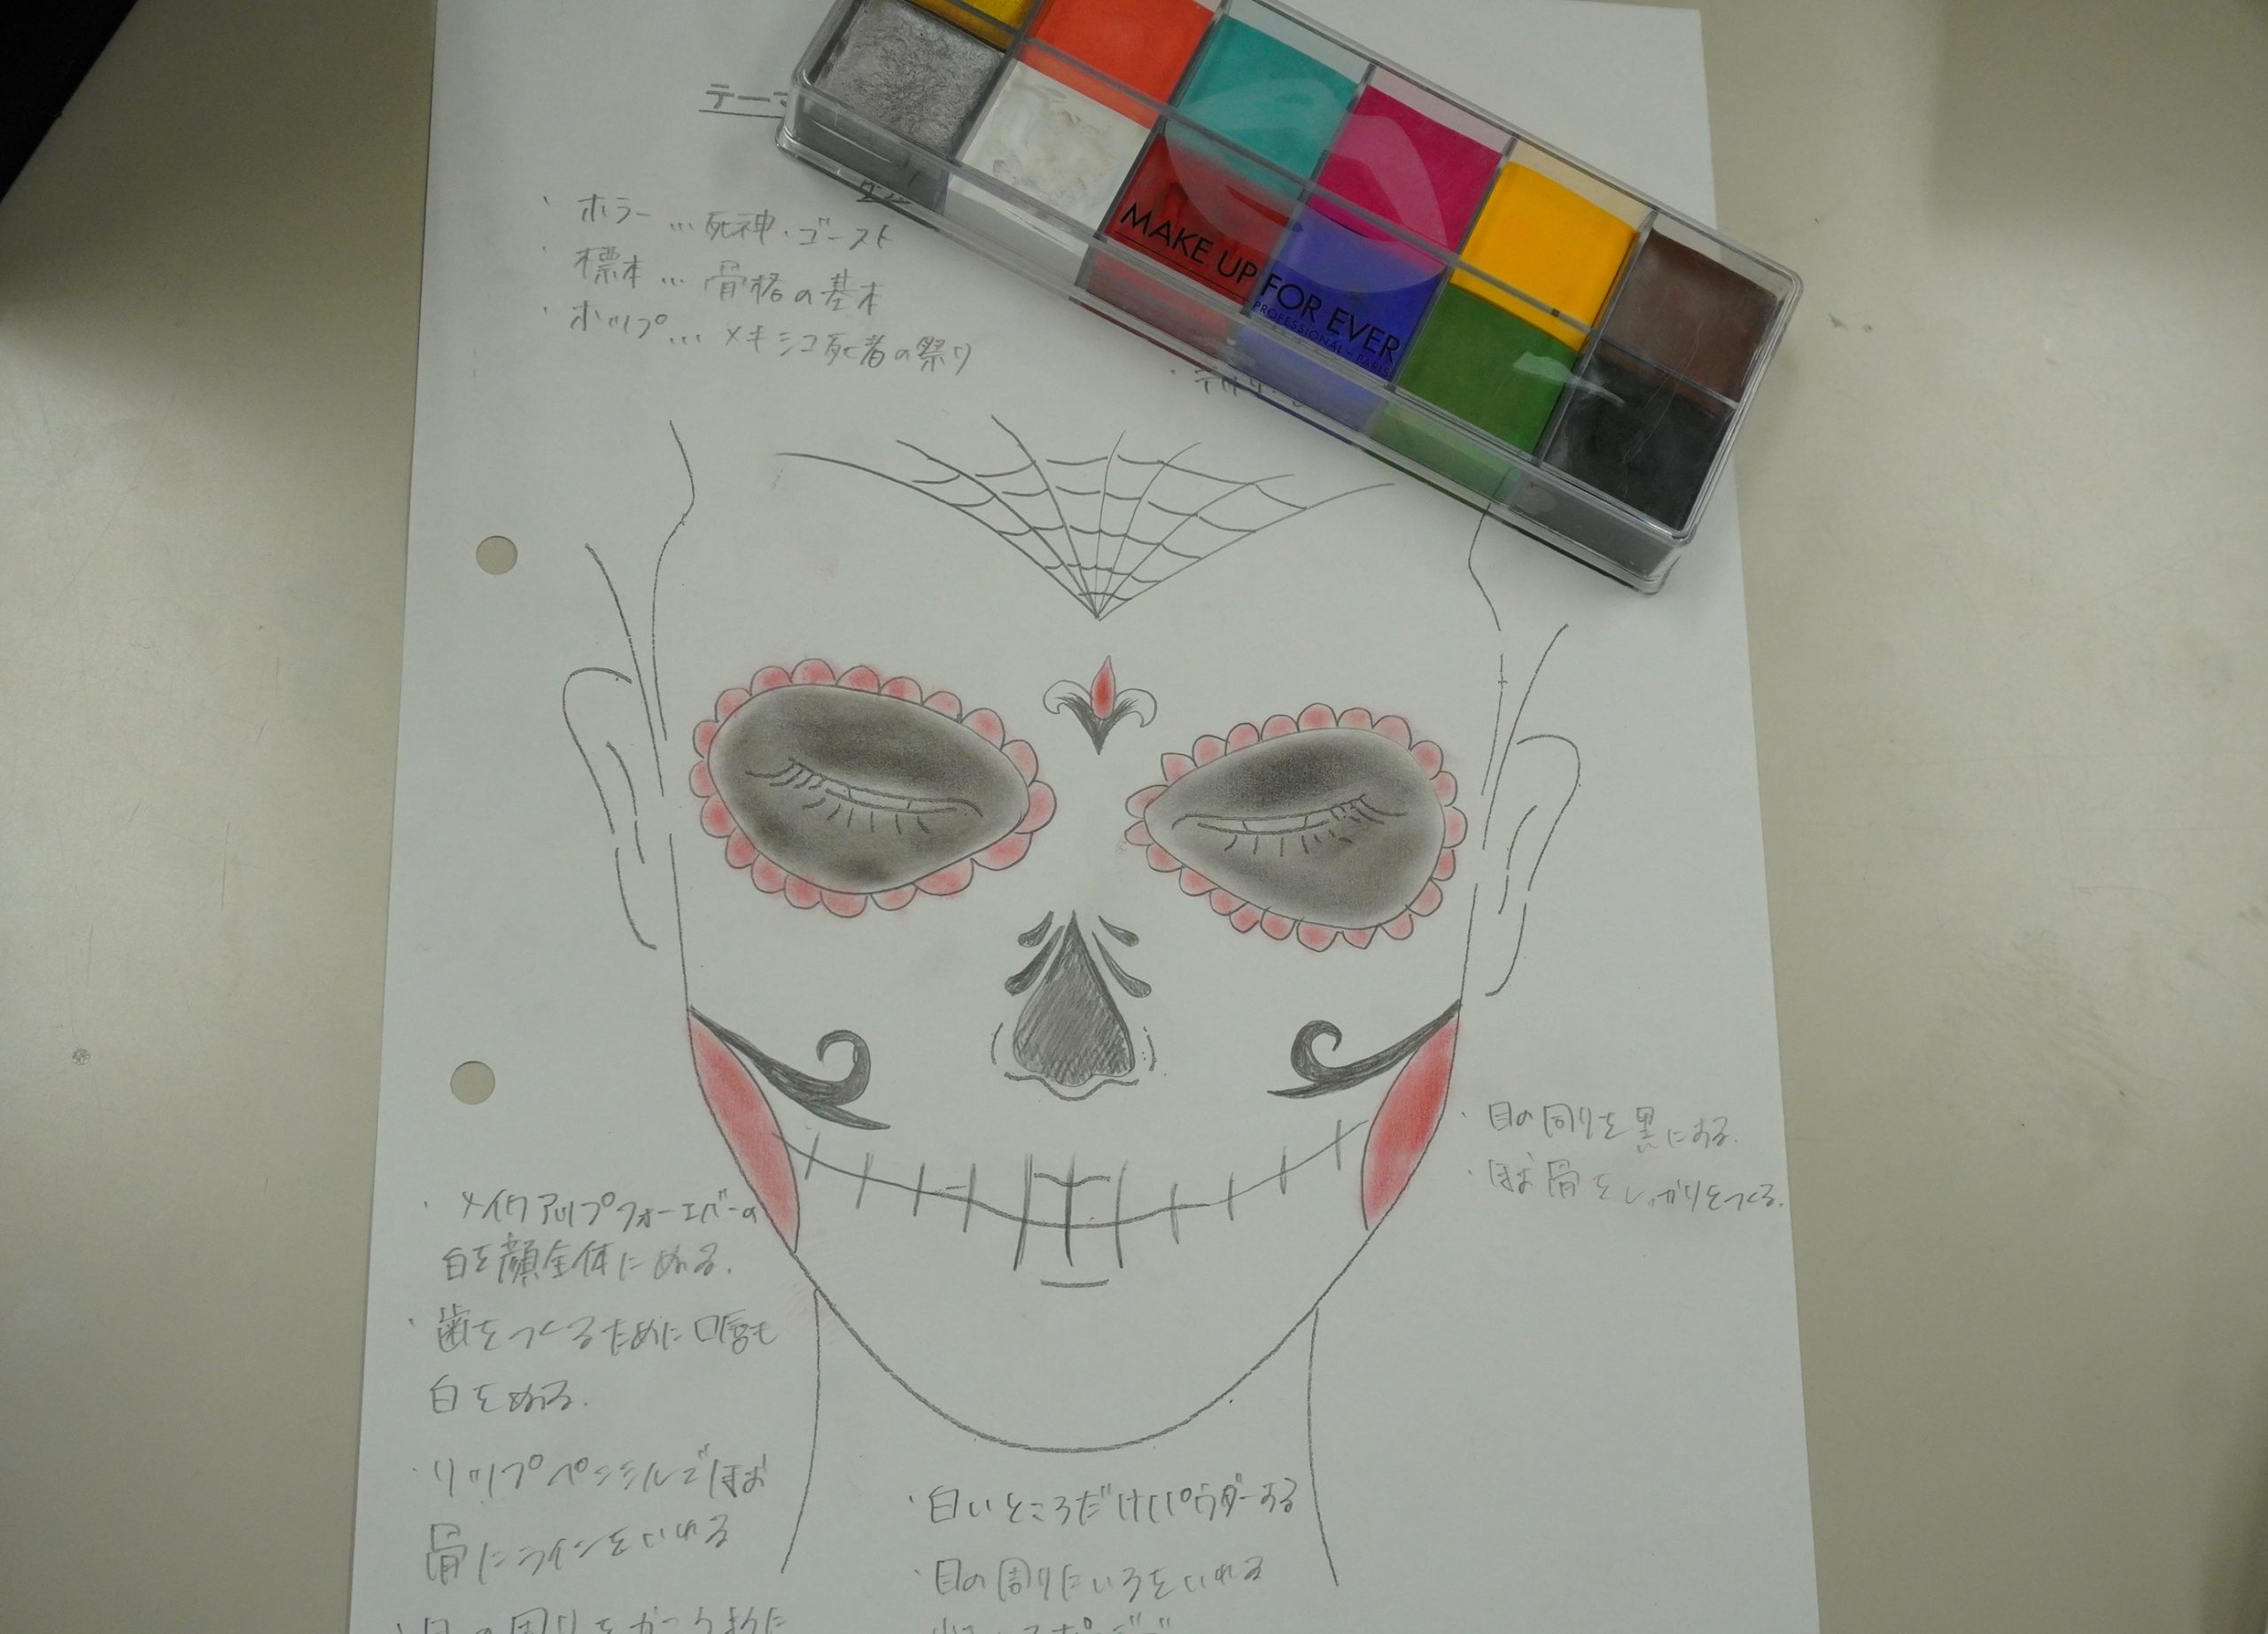 テーマ
・ホラー…死神・ゴースト
・標本…骨格の基本
・ポップ…メキシコ死者の祭り
MAKE UP FOR EVER
PROFESSIONAL - PARIS
・目の周りを黒にする。
・ほほ骨をしっかりをつくる。
・メイクアップフォーエバーの
白を顔全体にぬる。
・歯をつくるために口唇も
白をぬる。
・リップペンシルでほほ
骨にラインをいれる
・白いところだけパウダーする
・目の周りにいろをいれる